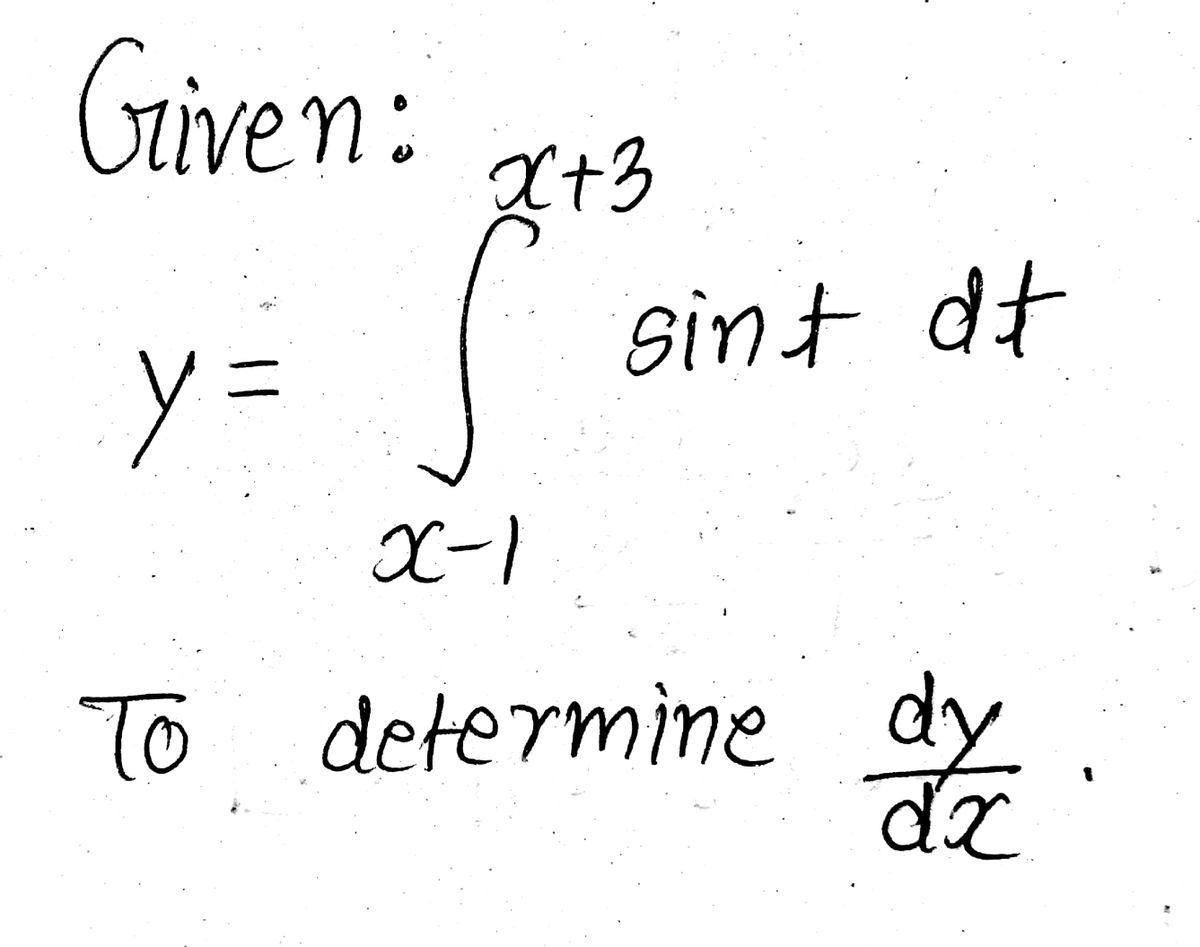 Given:
x+3
y = ∫ sint dt
x-1
To determine dy/dx.